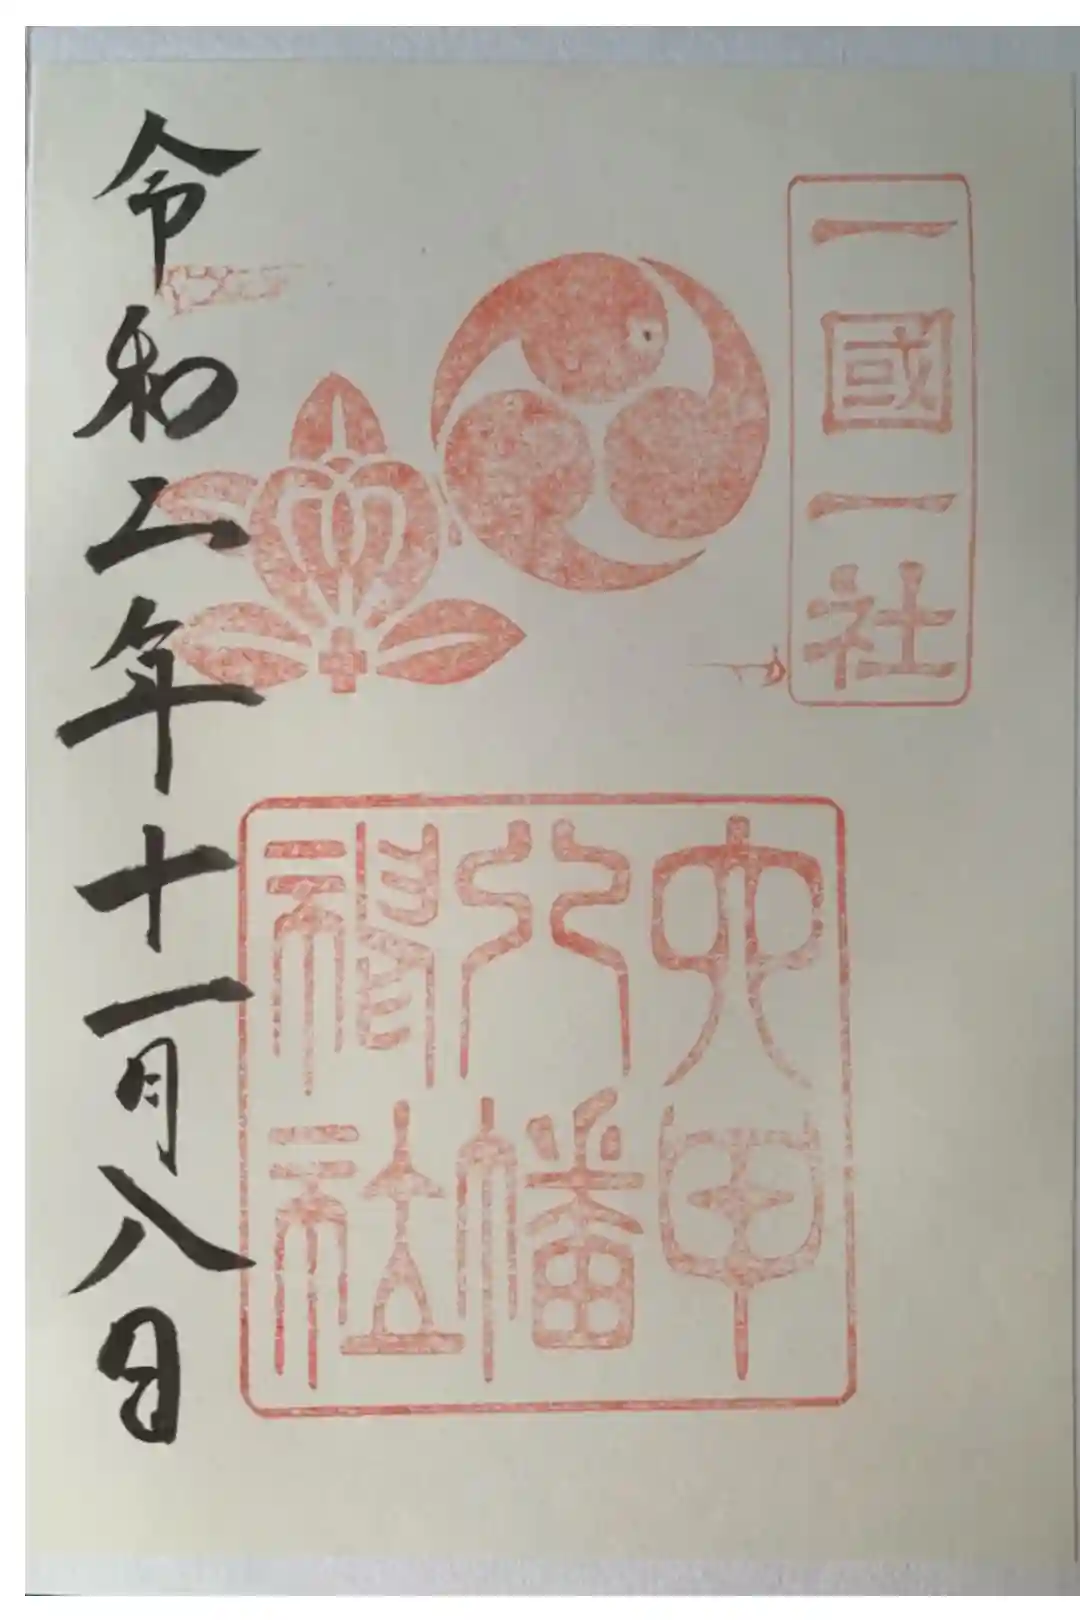 一國一社
六甲
八幡
神社
令和二年十一月八日